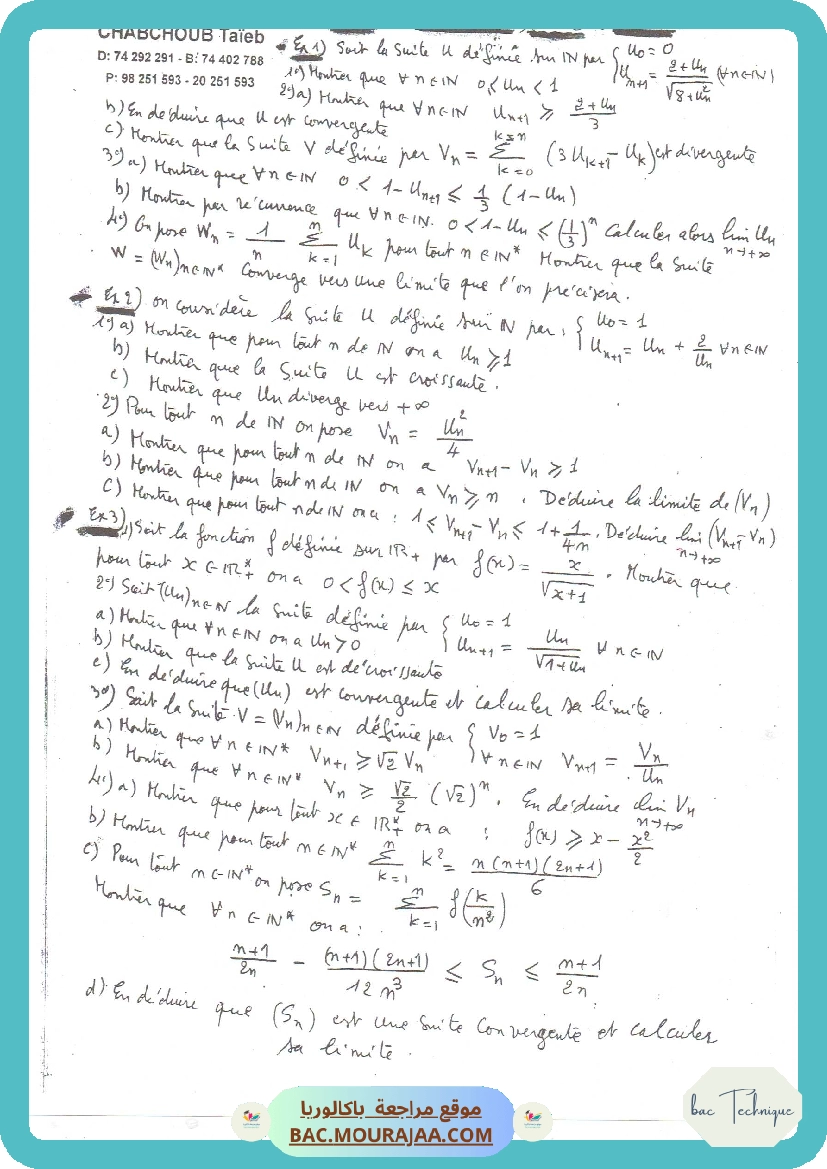 CHABCHOUB Taïeb
D: 74 292 291 - B: 74 402 788
P: 98 251 593 - 20 251 593
Ex 1) Soit la suite U définie sur IN par { U₀ = 0
U_{n+1} = (2 + Uₙ)/√(8 + Uₙ²) (∀n∈IN)
1°) Montrer que ∀ n ∈ IN 0 ≤ Uₙ < 1
2°) a) Montrer que ∀ n ∈ IN U_{n+1} ≥ (2 + Uₙ)/3
b) En déduire que U est convergente
c) Montrer que la suite V définie par Vₙ = Σ_{k=0}^{k=n} (3 U_{k+1} - U_k) est divergente
3°) a) Montrer que ∀ n ∈ IN 0 < 1 - U_{n+1} ≤ 1/3 (1 - Uₙ)
b) Montrer par récurrence que ∀ n ∈ IN. 0 < 1 - Uₙ ≤ (1/3)ⁿ Calculer alors lim_{n→+∞} Uₙ
4°) On pose Wₙ = 1/n Σ_{k=1}^{n} U_k pour tout n ∈ IN* Montrer que la suite
W = (Wₙ)_{n∈IN*} Converge vers une limite que l'on précisera.
Ex 2) on considère la suite U définie sur IN par : { U₀ = 1
U_{n+1} = Uₙ + 2/Uₙ ∀n∈IN
1°) a) Montrer que pour tout n de IN on a Uₙ ≥ 1
b) Montrer que la suite U est croissante.
c) Montrer que Uₙ diverge vers +∞
2°) Pour tout n de IN on pose Vₙ = Uₙ²/4
a) Montrer que pour tout n de IN on a V_{n+1} - Vₙ ≥ 1
b) Montrer que pour tout n de IN on a Vₙ ≥ n. Déduire la limite de (Vₙ)
c) Montrer que pour tout n de IN on a : 1 ≤ V_{n+1} - Vₙ ≤ 1 + 1/4n. Déduire lim_{n→+∞} (V_{n+1} - Vₙ)
Ex 3) 1) Soit la fonction f définie sur IR₊ par f(x) = x/√(x+1). Montrer que
pour tout x ∈ IR₊* on a 0 < f(x) ≤ x
2°) Soit (Uₙ)_{n∈IN} la suite définie par { U₀ = 1
U_{n+1} = Uₙ/√(1+Uₙ) ∀ n ∈ IN
a) Montrer que ∀ n ∈ IN on a Uₙ > 0
b) Montrer que la suite U est décroissante
c) En déduire que (Uₙ) est convergente et calculer sa limite.
3°) Soit la suite V = (Vₙ)_{n∈IN} définie par { V₀ = 1
∀ n ∈ IN V_{n+1} = Vₙ/Uₙ
a) Montrer que ∀ n ∈ IN* V_{n+1} ≥ √2 Vₙ
b) Montrer que ∀ n ∈ IN* Vₙ ≥ √2/2 (√2)ⁿ. En déduire lim_{n→+∞} Vₙ
4°) a) Montrer que pour tout x ∈ IR₊* on a : f(x) ≥ x - x²/2
b) Montrer que pour tout n ∈ IN* Σ_{k=1}^{n} k² = n(n+1)(2n+1)/6
c) Pour tout n ∈ IN* on pose Sₙ = Σ_{k=1}^{n} f(k/n²)
Montrer que ∀ n ∈ IN* on a :
(n+1)/2n - (n+1)(2n+1)/12n³ ≤ Sₙ ≤ (n+1)/2n
d) En déduire que (Sₙ) est une suite Convergente et calculer
sa limite.
bac Technique
موقع مراجعة باكالوريا
BAC.MOURAJAA.COM